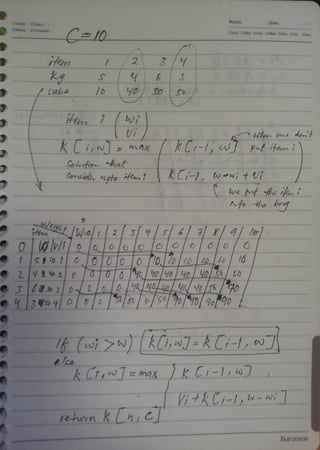 C=10
item 1 2 3 4
Kg 5 4 6 3
value 10 40 30 50
item i (wi
vi)
when we don't
put item i
K[i,w] = max ( K[i-1, w]
solution that
consider upto item i
K[i-1, w-wi] + vi
we put the item i
into the bag
weight
item W=0 1 2 3 4 5 6 7 8 9 10
0 0 0 0 0 0 0 0 0 0 0 0
1 5 10 0 0 0 0 0 10 10 10 10 10 10
2 4 40 0 0 0 0 40 40 40 40 40 50 50
3 6 30 0 0 0 0 40 40 40 40 40 50 70
4 3 50 0 0 0 50 50 50 50 90 90 90 90
If (wi > w) K[i,w] = K[i-1, w]
else
K[i,w] = max { K[i-1, w] ,
Vi + K[i-1, w-wi]
return K[n, C]
Barunson